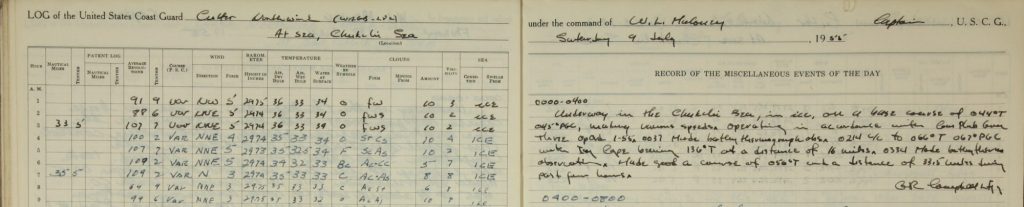 LOG of the United States Coast Guard Cutter Northwind (WAGB-282)
At sea, Chukchi Sea
(Location)
under the command of W. L. Maloney Captain, U. S. C. G.,
Saturday 9 July, 1955
RECORD OF THE MISCELLANEOUS EVENTS OF THE DAY
HOUR NAUTICAL MILES TENTHS PATENT LOG NAUTICAL MILES TENTHS AVERAGE REVOLUTIONS COURSE (P. S. C.) WIND DIRECTION FORCE BAROMETER HEIGHT IN INCHES TEMPERATURE AIR, DRY BULB AIR, WET BULB WATER AT SURFACE WEATHER BY SYMBOLS CLOUDS FORM MOVING FROM AMOUNT VISIBILITY SEA CONDITION SWELLS FROM
A. M.
1 91 9 VAR NW 5 2975 36 33 34 O FW 10 3 ICE
2 88 6 VAR NNE 5 2974 36 33 34 O FWS 10 2 ICE
3 33 5 107 7 VAR NNE 5 2974 36 33 34 O FWS 10 2 ICE
100 2 VAR NNE 4 2974 35 33 34 O 10 4 ICE
107 7 VAR NNE 5 2973 35 10 2 ICE
6 109 2 VAR NNE 5 2974 34 32 33 Bc Ac-Cc 5 7 ICE
7 35 5 109 2 VAR N 3 2974 35 33 33 C Ac-As 8 8 ICE
8 64 9 VAR NNE 3 2975 35 33 33 C 6 8 ICE
99 6 VAR NNE 3 2975 35 33 32 O 10 ICE
0000-0400
Underway in the Chukchi Sea, in ice, on a base course of 044°T
045° PGC, making various speeds. Operating in accordance with
Three OpOrd 1-55. 0037 Made bathythermograph obsn. 0214 C/C to 066°T 067° PGC
with Icy Cape bearing 136°T at a distance of 16 miles. 0334 Made bathythermo
observation. Made good a course of 050°T and a distance of 33.5 miles during
past four hours.
G.R. Campbell Ltjg
0400-0800